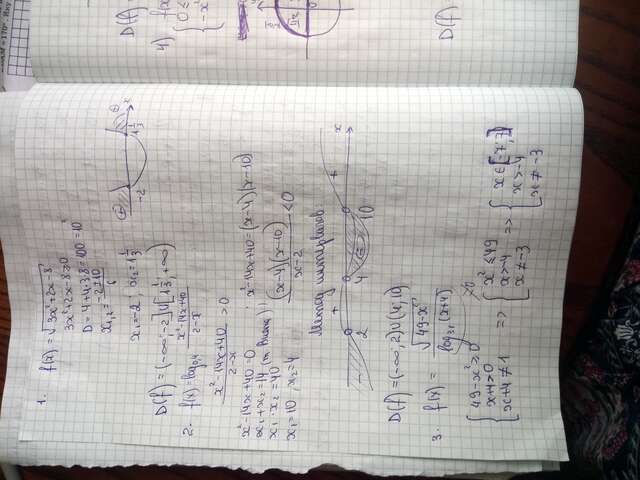 1. f(x) = √3x²+2x-8
3x²+2x-8≥0
D = 4+4·3·8=100=10²
x₁,₂ = (-2±10)/6
x₁=-2; x₂=1 1/3
-2 1 1/3 x
D(f) = (-∞;-2]∪[1 1/3;+∞)
2. f(x) = log₀,₄ (x²-14x+40)/(2-x)
(x²-14x+40)/(2-x) > 0
x²-14x+40=0
x₁+x₂=14
x₁·x₂=40 (т. Виета)
x₁=10, x₂=4
x²-14x+40=(x-4)(x-10)
(x-4)(x-10)/(x-2) <0
Метод интервалов:
+ - + x
2 4 10
D(f)=(-∞;2)∪(4;10)
3. f(x) = √49-x² / log₃,₁(x+4)
{49-x²≥0
x+4>0
x+4≠1
=> {x²≤49
x>-4
x≠-3
=> {x∈[-7;7]
x>-4
x≠-3
D(f)
4) f(x)
D(f)